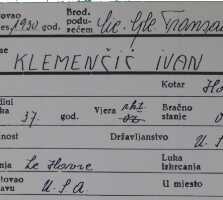 tovao
es, 1930 god.
Brod.
podu-
zećem
se
KLEMENČIČ IVAN
Kotar
dini
ka 37. god.
Vjera rkt.
oz.
Bračno
stanje
nost
Državljanstvo U.S.
nja Le Havre
Luka
izkrcanja
tovao
avu U.S.A.
U mjesto